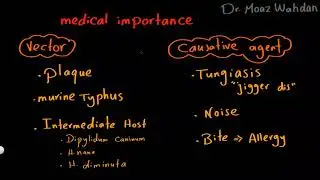 Dr. Moaz Wahdan
medical importance
Vector
• Plaque
• murine Typhus
• Intermediate Host
• Dipylidum Caninum
• H nana
• H. diminuta
Causative agent
• Tungiasis
"jigger dis"
• Noise
• Bite ⇒ Allergy